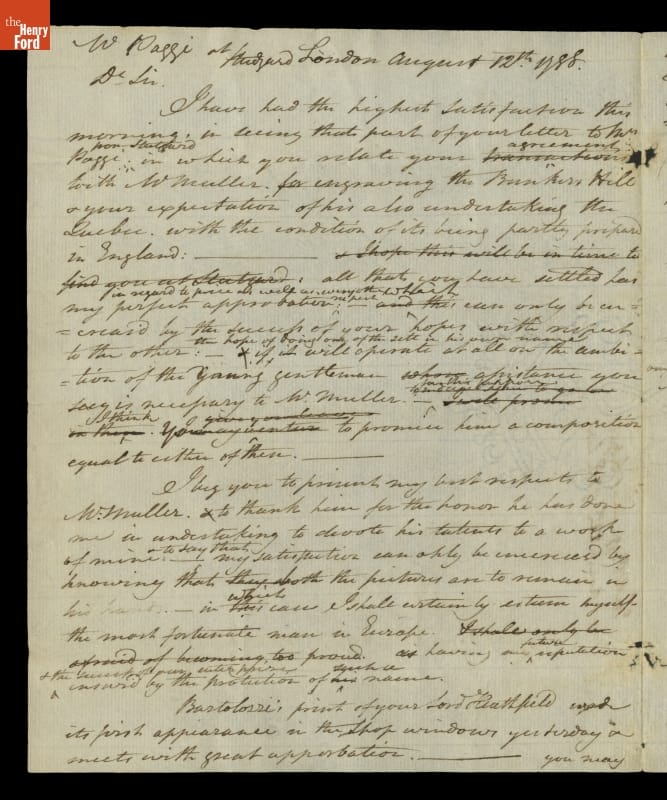 the
Henry
Ford
Mr Poggi at Studgard London August 12th 1788.
Dr Sir.
I have had the highest satisfaction this
morning, in seeing that part of your letter to Mrs
from Statgard
agreement
Poggi in which you relate your transactions
with Mr Muller. for engraving the Bunkers Hill
& your expectation of his also undertaking the
Quebec. with the condition of its being partly prepard
in England: & I hope this will be in time to
find you at Statgard: all that you have settled has
in regard to price as well as every other respect which
my perfect approbation: and this can only be en-
=creasd by the success of your hopes with respect
the hope of being one of the sett in his own name
to the other: — & if it will operate at all on the ambi-
=tion of the Young gentleman whose assistance you
say is necessary to Mr Muller. —
I think give you leave
in them. You may venture to promise him a composition
equal to either of these.
I beg you to present my best respects to
Mr. Muller. & to thank him for the honor he has done
me in undertaking to devote his talents to a work
& to say that
of mine — my satisfaction can only be increased by
knowing that they both the pictures are to remain in
which
his hands. — in this case I shall certainly esteem myself
the most fortunate man in Europe. & I shall only be
future
afraid of becoming too proud. as having my reputation
& the success of our enterprise such a
insur'd by the protection of his name.
Bartolozzi's print of your Lord Heathfield made
its first appearance in the shop windows yesterday &
meets with great approbation. you may